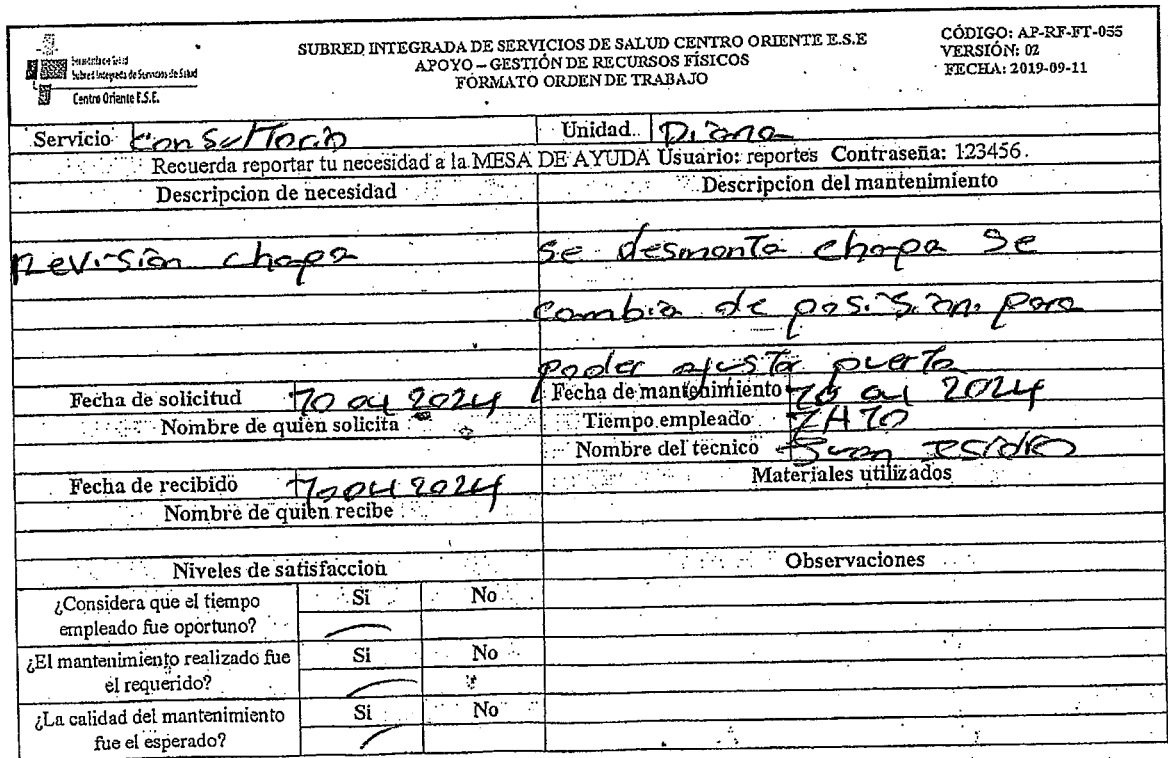 Secretaría de Salud
Subred Integrada de Servicios de Salud
Centro Oriente E.S.E.
SUBRED INTEGRADA DE SERVICIOS DE SALUD CENTRO ORIENTE E.S.E
APOYO – GESTIÓN DE RECURSOS FÍSICOS
FORMATO ORDEN DE TRABAJO
CÓDIGO: AP-RF-FT-055
VERSIÓN: 02
FECHA: 2019-09-11
Servicio consultorio Unidad Diana
Recuerda reportar tu necesidad a la MESA DE AYUDA Usuario: reportes Contraseña: 123456.
Descripcion de necesidad
Revisión chapa
Descripcion del mantenimiento
se desmonta chapa se
cambia de posisian para
poder ajustar puerta
Fecha de solicitud 10 04 2024
Nombre de quien solicita
Fecha de mantenimiento 10 04 2024
Tiempo empleado
Nombre del tecnico
Fecha de recibido 10 04 2024
Nombre de quien recibe
Materiales utilizados
Niveles de satisfaccion
¿Considera que el tiempo Si No
empleado fue oportuno?
¿El mantenimiento realizado fue Si No
el requerido?
¿La calidad del mantenimiento Si No
fue el esperado?
Observaciones